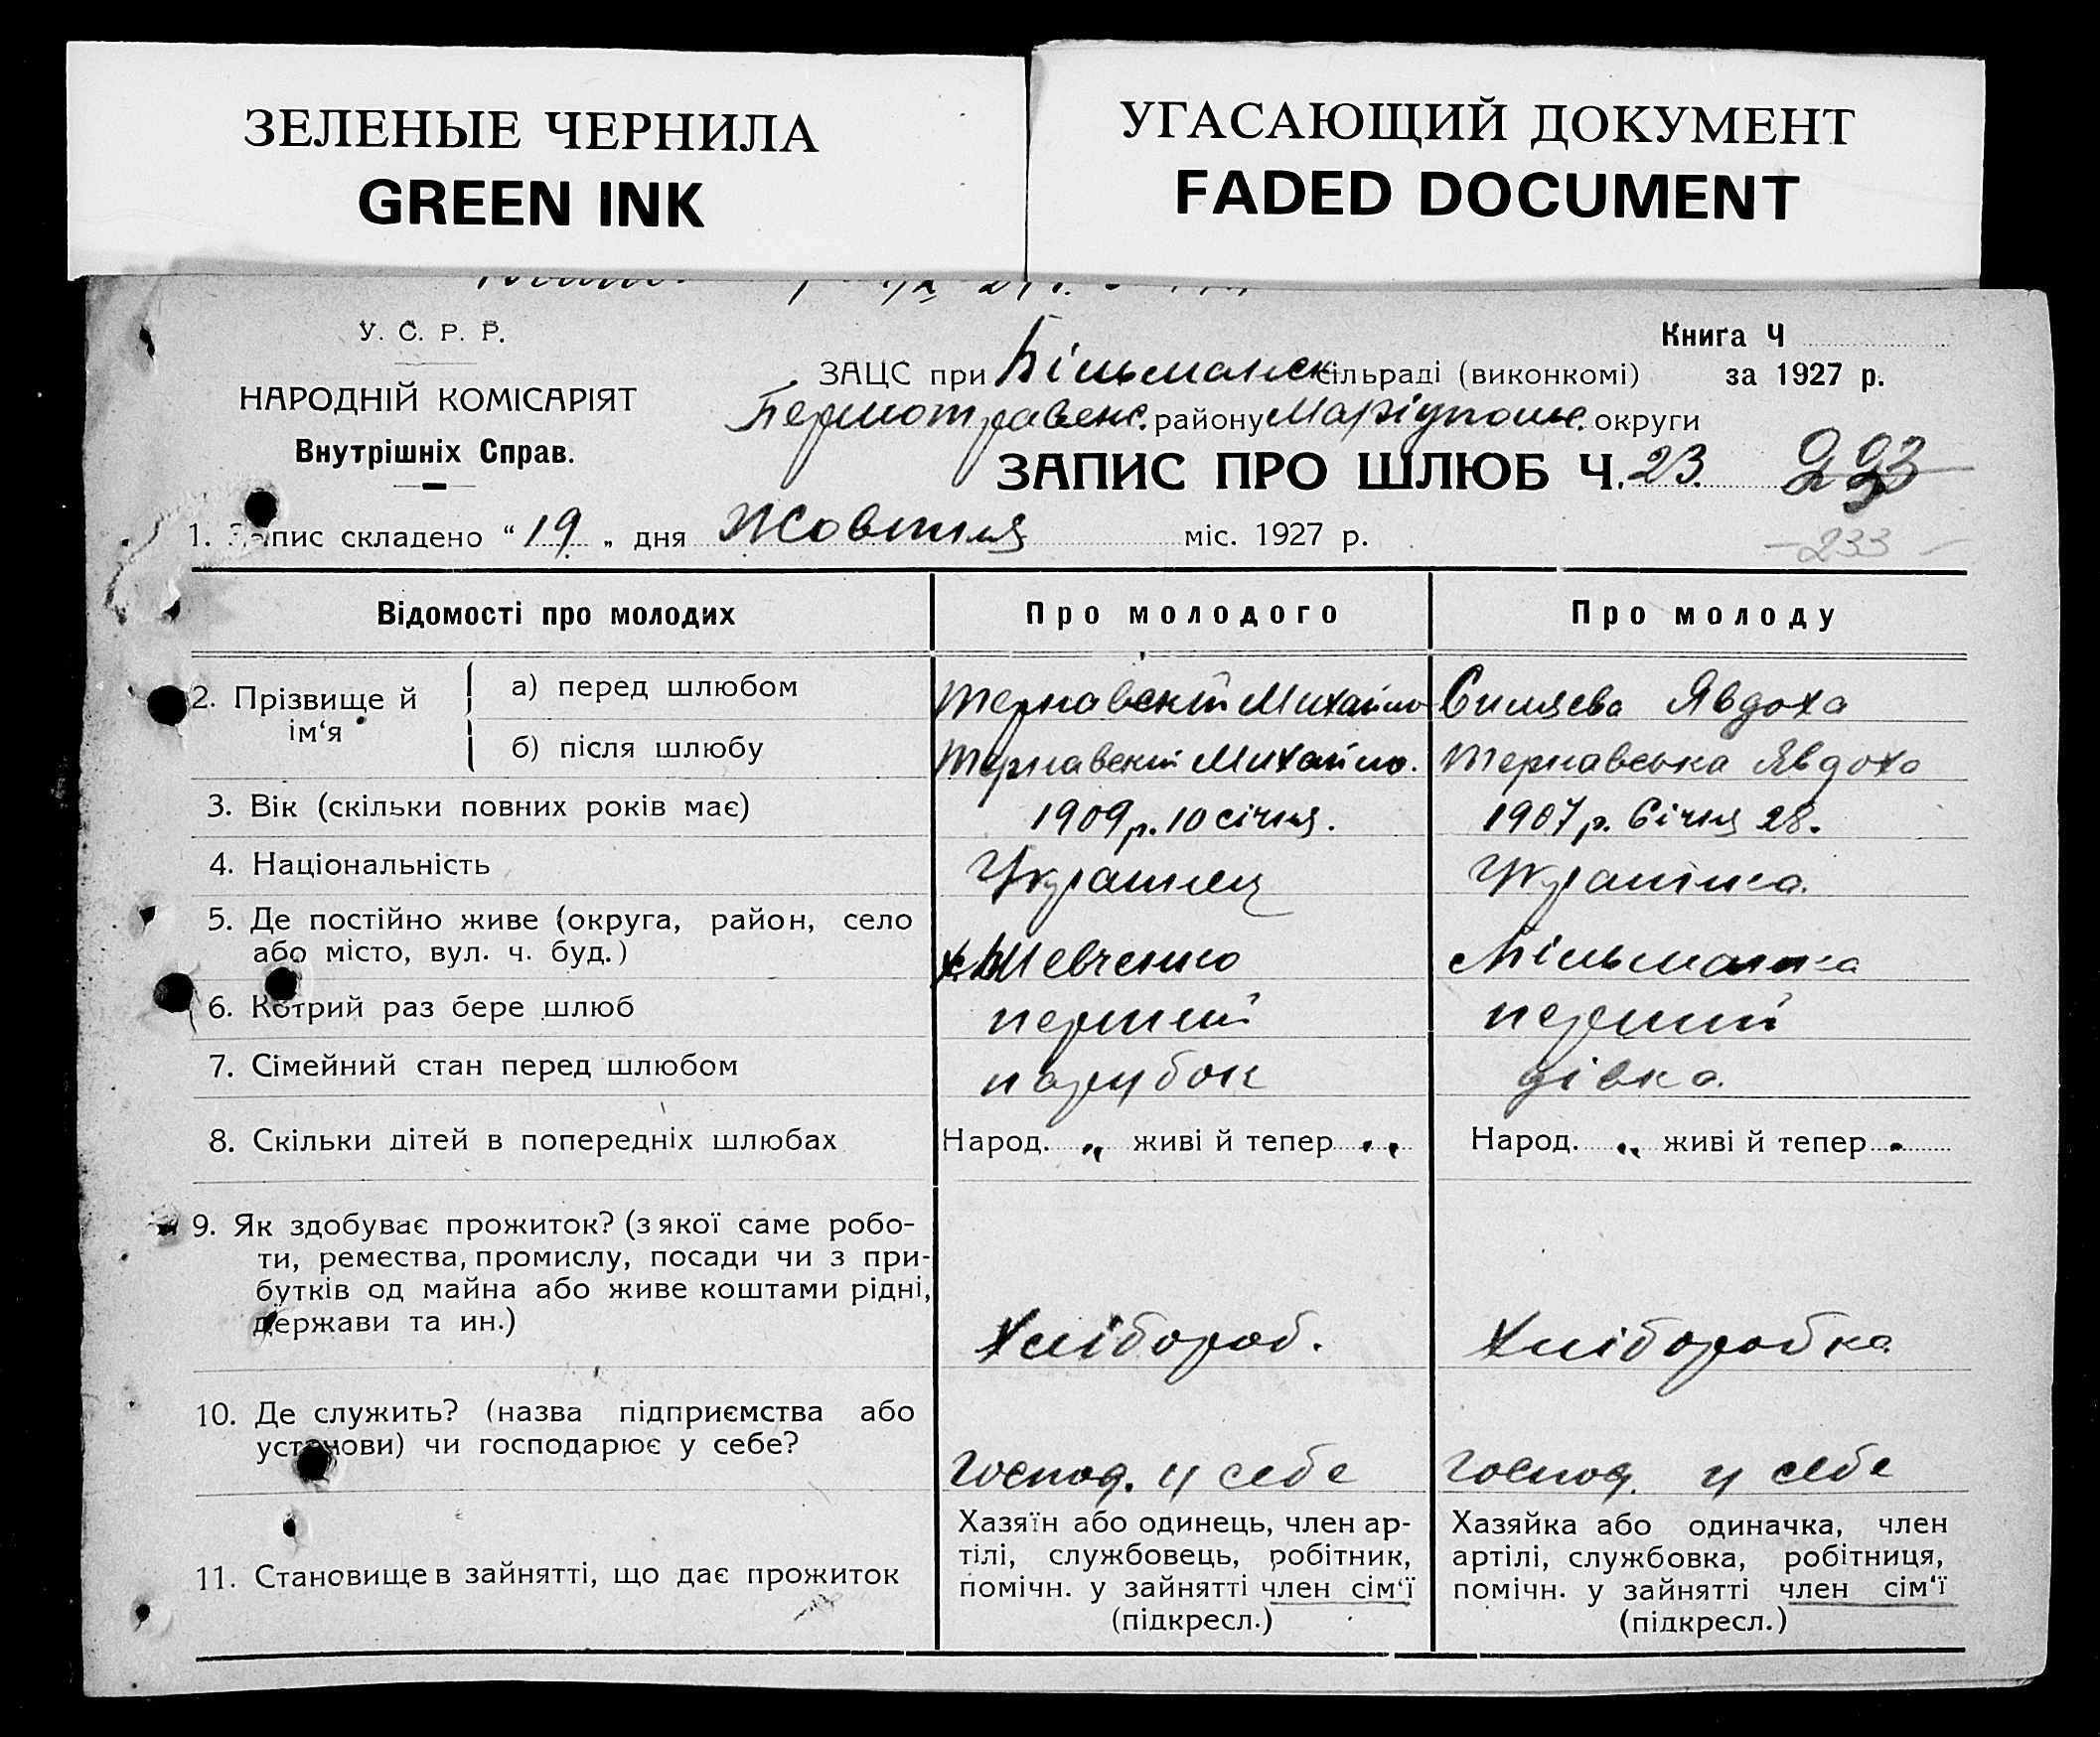 ЗЕЛЕНЫЕ ЧЕРНИЛА
GREEN INK
УГАСАЮЩИЙ ДОКУМЕНТ
FADED DOCUMENT
У. С. Р. Р.
НАРОДНІЙ КОМІСАРІЯТ
Внутрішніх Справ.
Книга Ч
за 1927 р.
ЗАЦС при Більманск сільраді (виконкомі)
району Маріуполь. округи
ЗАПИС ПРО ШЛЮБ Ч. 23.
223
- 233 -
1. Запис складено “ 19 „ дня Жовтня міс. 1927 р.
Відомості про молодих
Про молодого
Про молоду
2. Прізвище й ім‘я
а) перед шлюбом
Тернавский Михайло
Явдоха
б) після шлюбу
Тернавский Михайло.
Тернавська Явдоха
3. Вік (скільки повних років має)
1909 р. 10 січня.
1907 р. Січня 28.
4. Національність
Украинец
Українка.
5. Де постійно живе (округа, район, село
або місто, вул. ч. буд.)
х. Шевченко
6. Котрий раз бере шлюб
перший
перший
7. Сімейний стан перед шлюбом
парубок
дівка.
8. Скільки дітей в попередніх шлюбах
Народ. „ живі й тепер „
Народ. „ живі й тепер „
9. Як здобуває прожиток? (з якої саме робо-
ти, ремества, промислу, посади чи з при-
бутків од майна або живе коштами рідні,
держави та ин.)
Хлібороб.
Хліборобка
10. Де служить? (назва підприємства або
установи) чи господарює у себе?
Господ. у себе
Господ. у себе
11. Становище в зайнятті, що дає прожиток
Хазяїн або одинець, член ар-
тілі, службовець, робітник,
помічн. у зайнятті член сім‘ї
(підкресл.)
Хазяйка або одиначка, член
артілі, службовка, робітниця,
помічн. у зайнятті член сім‘ї
(підкресл.)